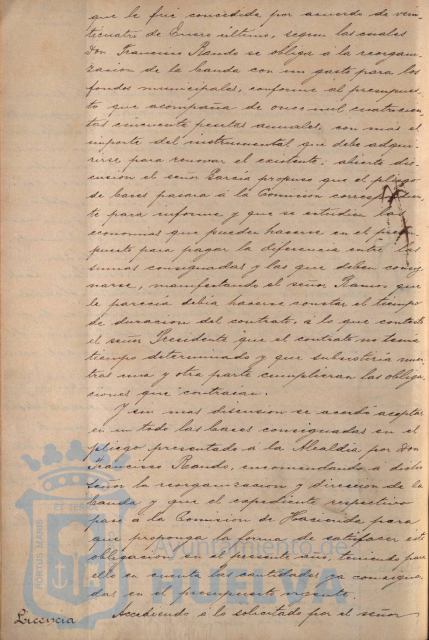 que le fué concedida por acuerdo de vein
ticuatro de Enero último, segun las cuales
Don Francisco Rando se obliga á la reorgani
zacion de la banda con un gasto para los
fondos municipales, conforme al presupues
to que acompaña de once mil cuatrocien
tas cincuenta pesetas anuales, con mas el
importe del instrumental que debe adqui
rirse para renovar el existente; abierta dis
cusion el señor Garcia propuso que el pliego
de bases pasara á la Comision correspondien
te para informe y que se estudien las
economias que pueden hacerse en el presu
puesto para pagar la diferencia entre las
sumas consignadas y las que deben consig
narse, manifestando el señor Ramos que
le parecia debia hacerse constar el tiempo
de duracion del contrato, á lo que contestó
el señor Presidente que el contrato no tenia
tiempo determinado y que subsistiria mien
tras una y otra parte cumplieran las obliga
ciones que contraian.
Y sin mas discusion se acordó aceptar
en un todo las bases consignadas en el
pliego presentado á la Alcaldia por Don
Francisco Rando, encomendando á dicho
señor la reorganizacion y direccion de la
banda y que el expediente respectivo
pase á la Comision de Hacienda para
que proponga la forma de satisfacer esta
obligacion en el presente año, teniendo para
ello en cuenta las cantidades ya consigna
das en el presupuesto vigente.
Licencia Accediendo á lo solicitado por el señor
PORTUS MARIS
ET TERR
Ayuntamiento de
HUELVA